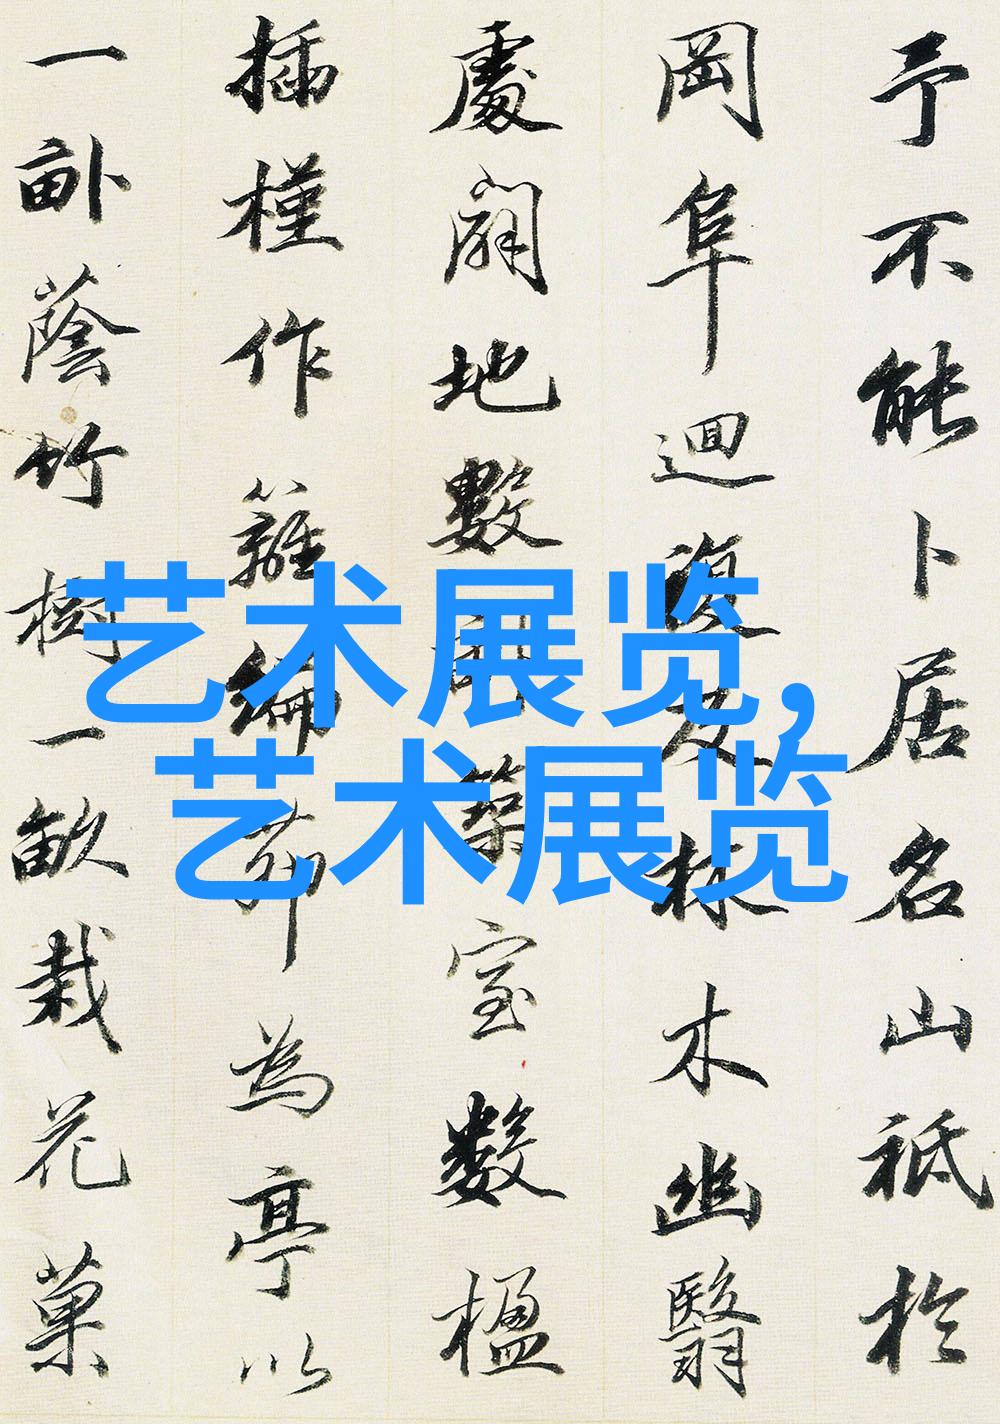 予不能卜居名山祗於
岡阜迴複及林木幽翳
處闢地數畝築室數楹
插槿作籬編茆為亭以
一畝蔭竹樹一畝栽花菓
艺术展览，
艺术展览